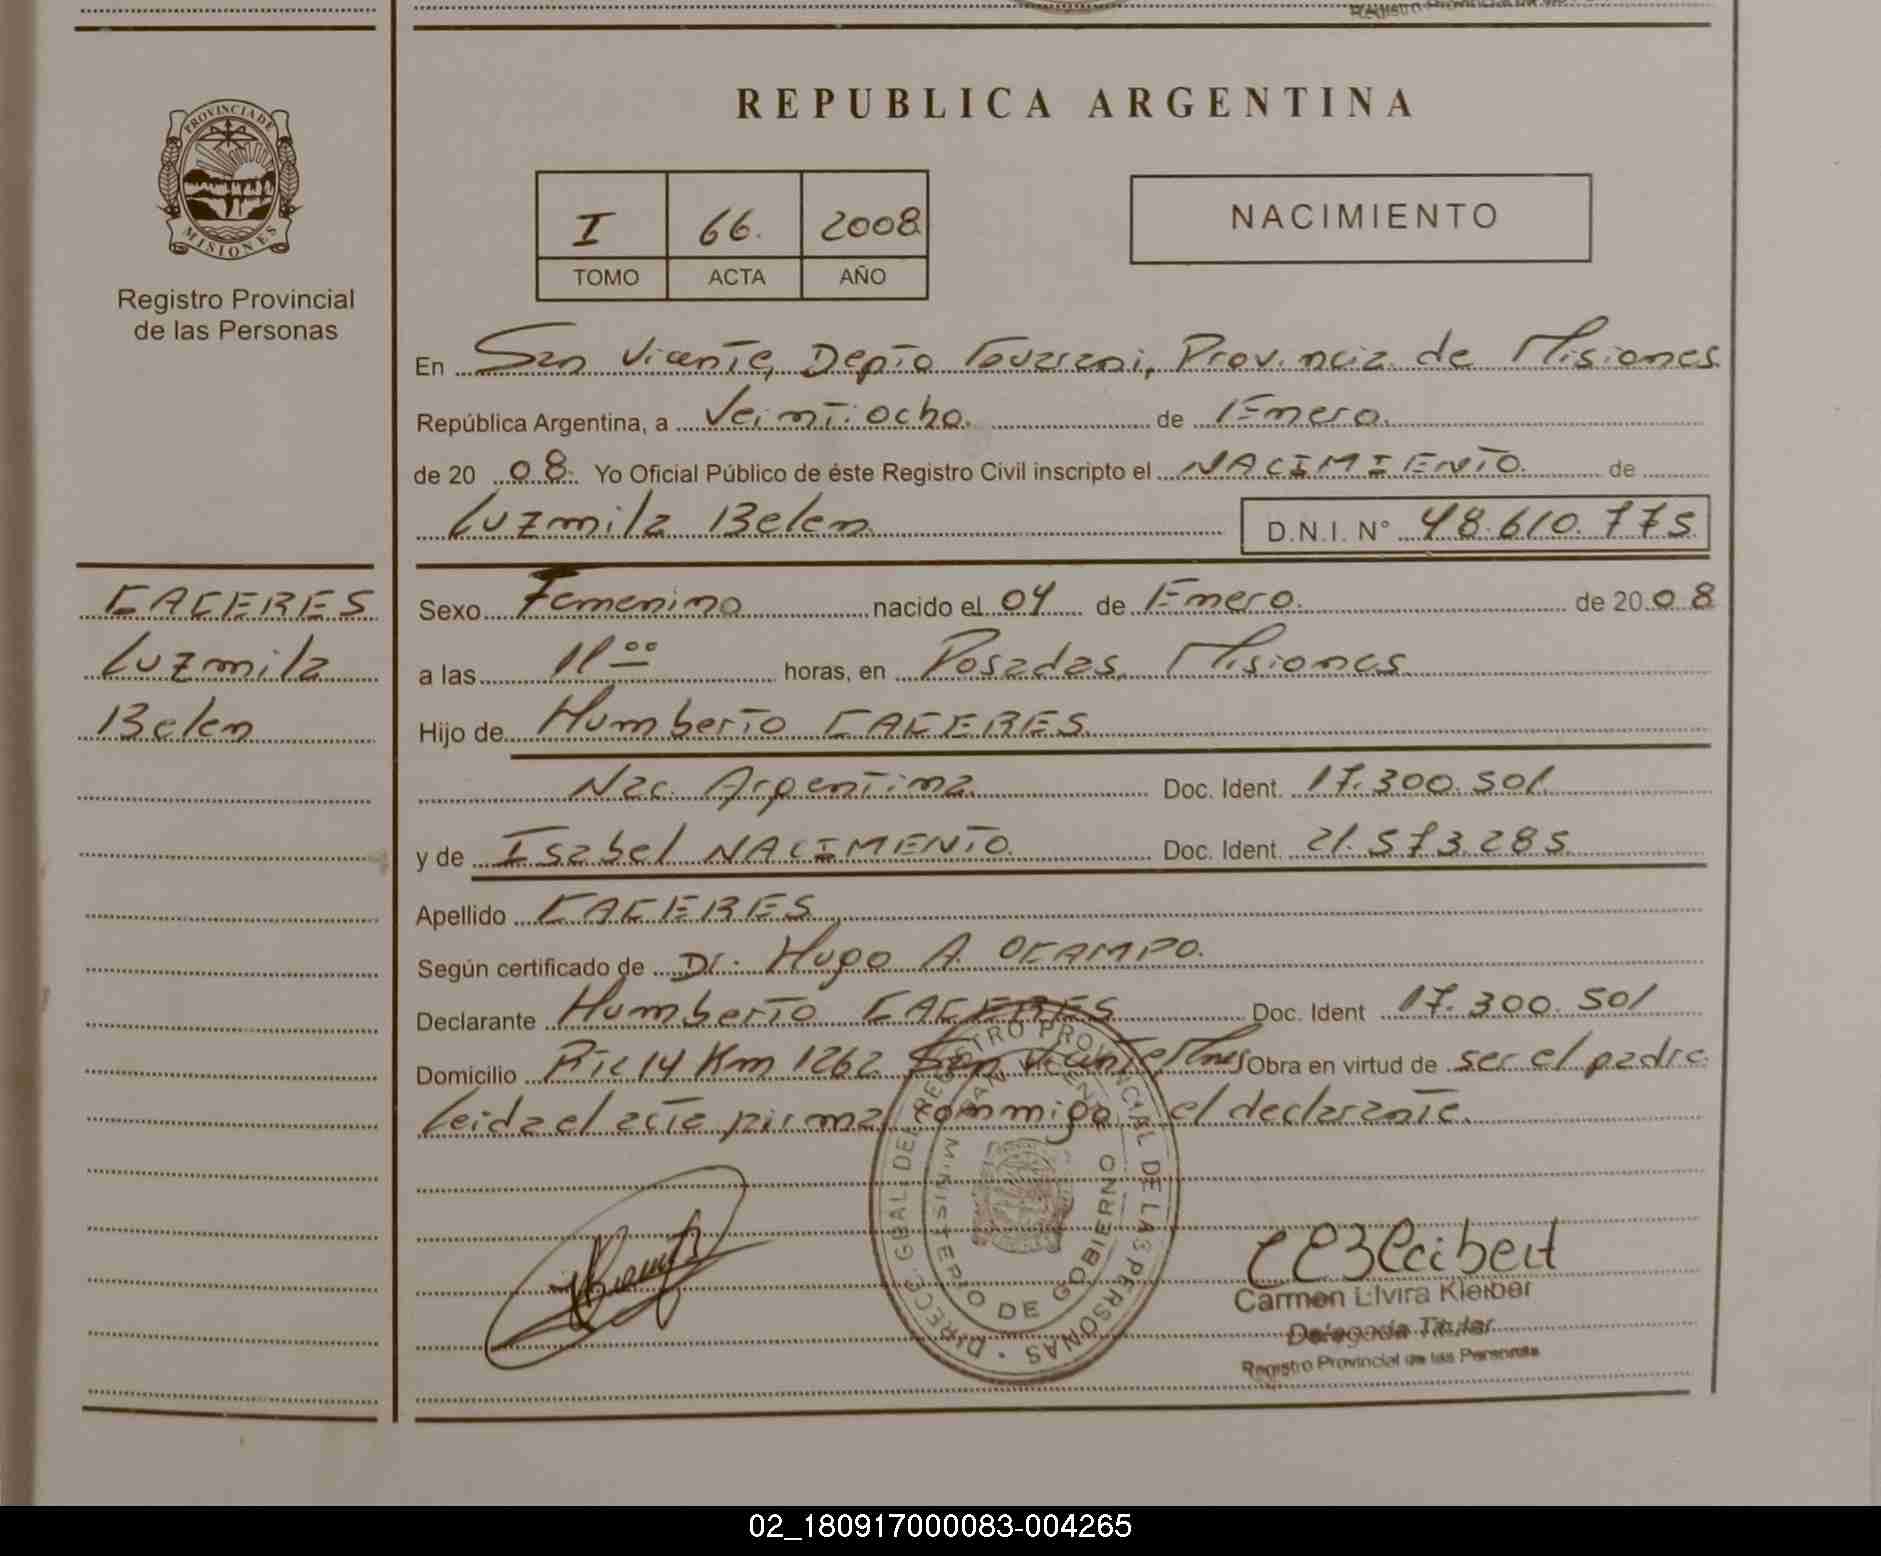 PROVINCIA DE
MISIONES
Registro Provincial
de las Personas
CACERES
Luzmila
Belen
REPUBLICA ARGENTINA
I 66. 2008
TOMO ACTA AÑO
NACIMIENTO
En San Vicente, Depto Guarani, Provincia de Misiones
República Argentina, a Veintiocho. de Enero.
de 20 08. Yo Oficial Público de éste Registro Civil inscripto el NACIMIENTO. de
Luzmila Belen D.N.I. N° 48.610.775.
Sexo Femenino nacido el 04 de Enero. de 20 08
a las 11 00 horas, en Posadas, Misiones.
Hijo de Humberto CACERES.
Nac. Argentina. Doc. Ident. 17.300.501.
y de Isabel NACIMENTO. Doc. Ident. 21.573.285.
Apellido CACERES
Según certificado de Dr. Hugo A. OCAMPO.
Declarante Humberto CACERES Doc. Ident 17.300.501
Domicilio Km 1262 San Vicente Mnes Obra en virtud de ser el padre
Leida el acta firma conmigo el declarante.
DIRECC. GRAL. DEL REGISTRO PROVINCIAL DE LAS PERSONAS
MINISTERIO DE GOBIERNO
SAN VICENTE
Carmen Elvira Kleiber
Delegada Titular
Registro Provincial de las Personas
02_180917000083-004265